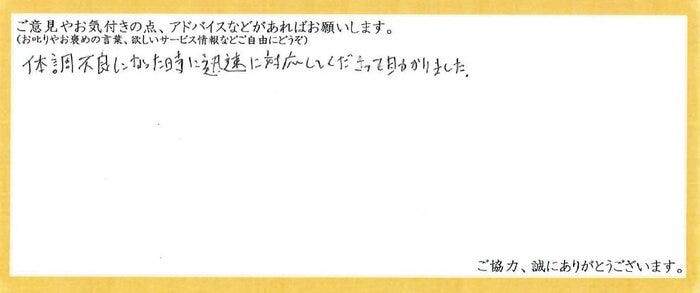 ご意見やお気付きの点、アドバイスなどがあればお願いします。
(お叱りやお褒めの言葉、欲しいサービス情報などご自由にどうぞ)
体調不良になった時に迅速に対応してくださって助かりました.
ご協力、誠にありがとうございます。